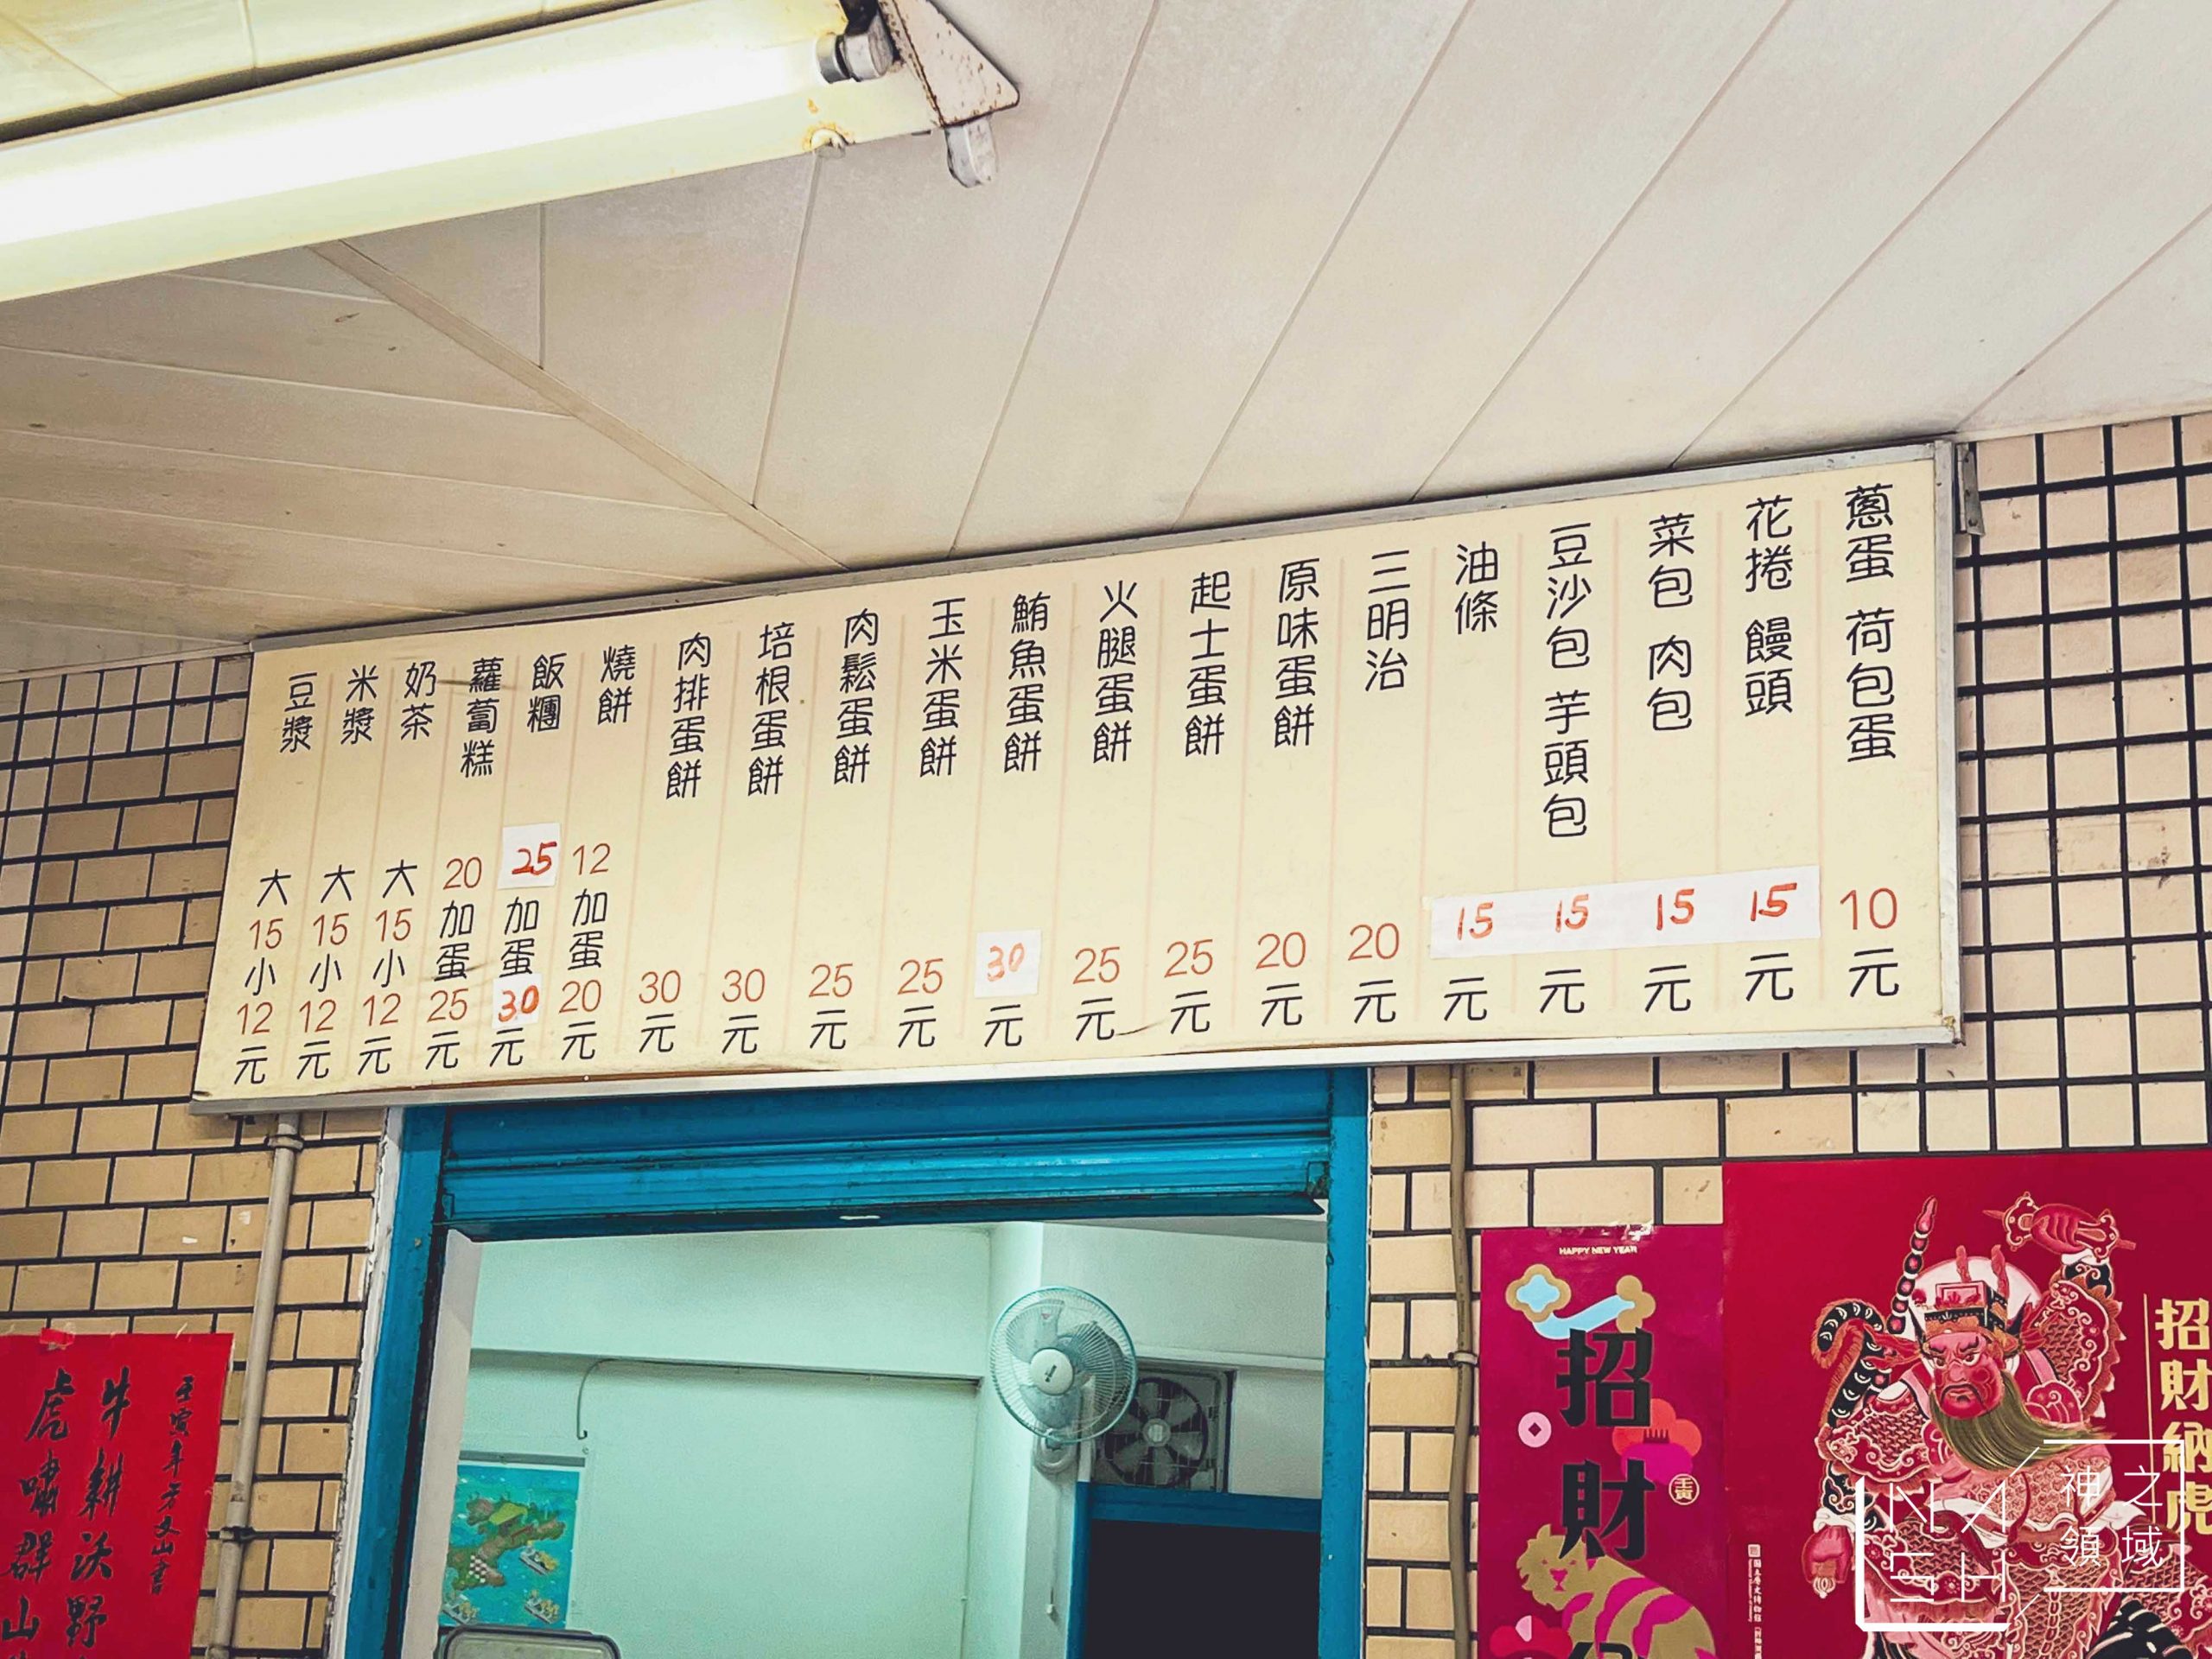 蔥蛋 荷包蛋 10元
花捲 饅頭 15元
菜包 肉包 15元
豆沙包 芋頭包 15元
油條 15元
三明治 20元
原味蛋餅 20元
起士蛋餅 25元
火腿蛋餅 25元
鮪魚蛋餅 30元
玉米蛋餅 25元
肉鬆蛋餅 25元
培根蛋餅 30元
肉排蛋餅 30元
燒餅 12加蛋20元
飯糰 25加蛋30元
蘿蔔糕 20加蛋25元
奶茶 大15小12元
米漿 大15小12元
豆漿 大15小12元
壬寅年
牛耕沃野
虎嘯群山
HAPPY NEW YEAR
招財
壬寅
招財納虎
NASH
神之
領域